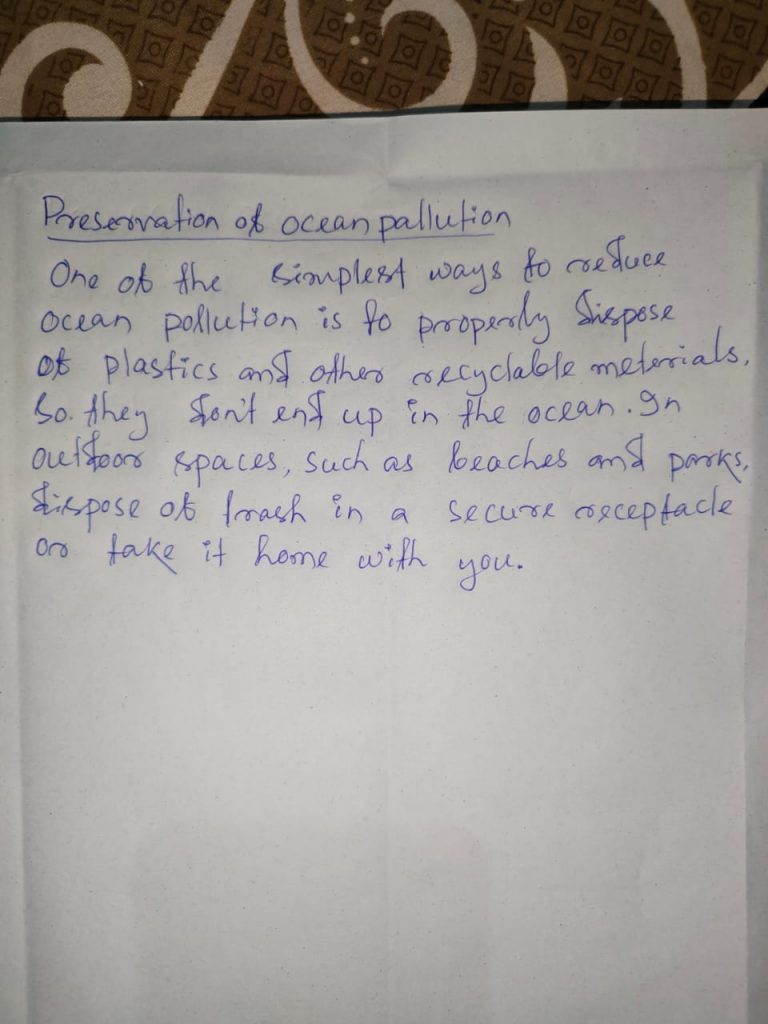 Preservation of ocean pallution
One of the simplest ways to reduce
ocean pollution is to properly dispose
of plastics and other recyclable meterials,
So. they don't end up in the ocean. In
outdoor spaces, such as beaches and parks,
dispose of trash in a secure receptacle
or take it home with you.